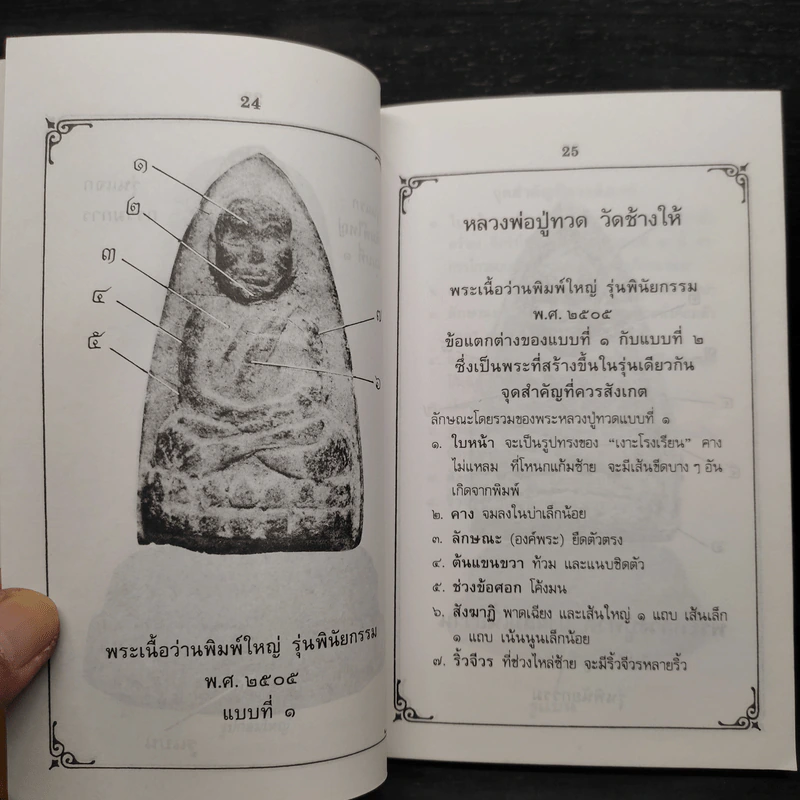 24
๑
๒
๓
๔
๕
๗
๖
พระเนื้อว่านพิมพ์ใหญ่ รุ่นพินัยกรรม
พ.ศ. ๒๕๐๕
แบบที่ ๑
25
หลวงพ่อปู่ทวด วัดช้างให้
พระเนื้อว่านพิมพ์ใหญ่ รุ่นพินัยกรรม
พ.ศ. ๒๕๐๕
ข้อแตกต่างของแบบที่ ๑ กับแบบที่ ๒
ซึ่งเป็นพระที่สร้างขึ้นในรุ่นเดียวกัน
จุดสำคัญที่ควรสังเกต
ลักษณะโดยรวมของพระหลวงปู่ทวดแบบที่ ๑
๑. ใบหน้า จะเป็นรูปทรงของ “เงาะโรงเรียน” คาง
ไม่แหลม ที่โหนกแก้มซ้าย จะมีเส้นขีดบาง ๆ อัน
เกิดจากพิมพ์
๒. คาง จมลงในบ่าเล็กน้อย
๓. ลักษณะ (องค์พระ) ยืดตัวตรง
๔. ต้นแขนขวา ท้วม และแนบชิดตัว
๕. ช่วงข้อศอก โค้งมน
๖. สังฆาฏิ พาดเฉียง และเส้นใหญ่ ๑ แถบ เส้นเล็ก
๑ แถบ เน้นนูนเล็กน้อย
๗. ริ้วจีวร ที่ช่วงไหล่ซ้าย จะมีริ้วจีวรหลายริ้ว